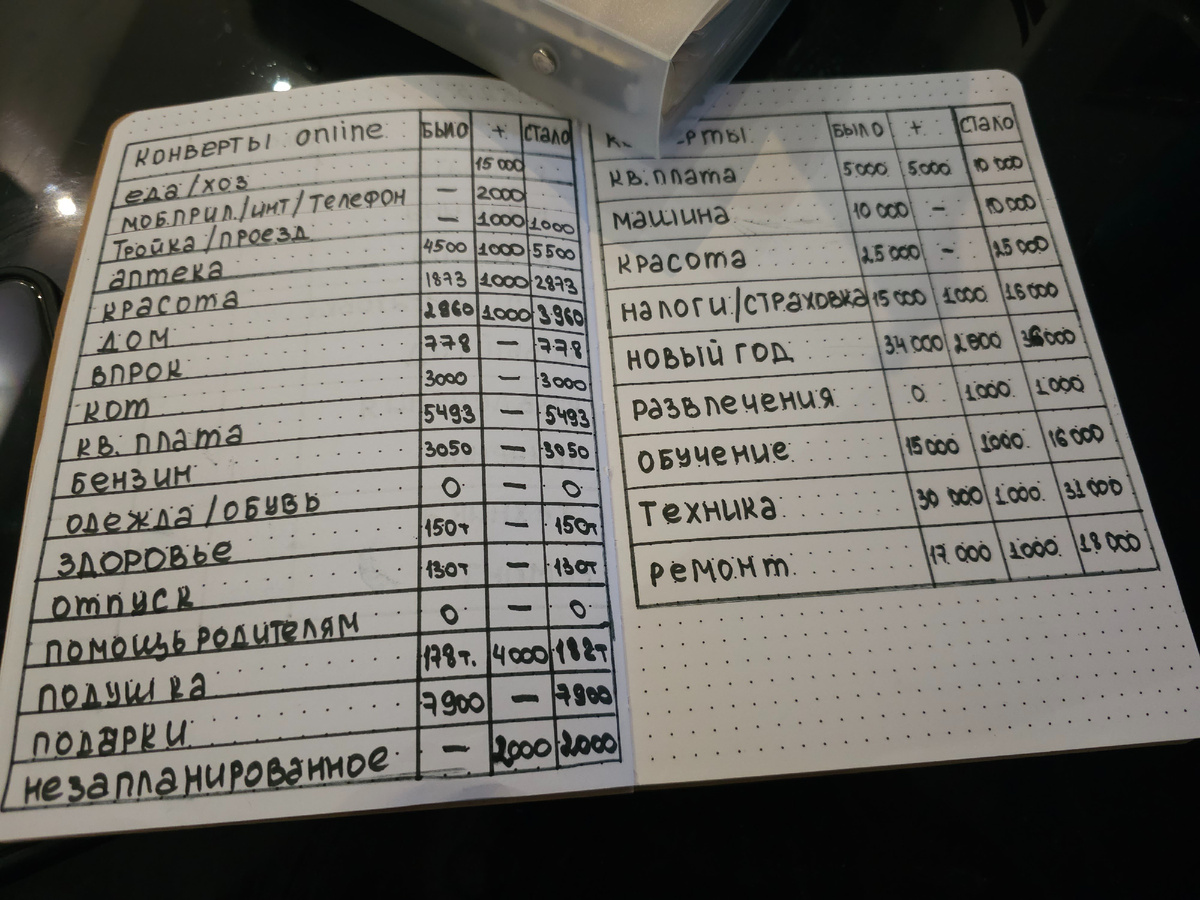 КОНВЕРТЫ online БЫЛО + СТАЛО
еда/хоз 15 000
моб.прил./инт/телефон — 2000
Тройка/проезд — 1000 1000
аптека 4500 1000 5500
красота 1873 1000 2873
ДОМ 2860 1000 3960
ВПРОК 778 — 778
кот 3000 — 3000
кв. плата 5493 — 5493
бензин 3050 — 3050
одежда/обувь 0 — 0
ЗДОРОВЬЕ 150т — 150т
отпуск 130т — 130т
помощь родителям 0 — 0
подушка 178т. 4000 182т
подарки 7900 — 7900
незапланированное — 2000 2000
БЫЛО + СТАЛО
кв. плата 5000 5000 10 000
машина 10 000 — 10 000
красота 25 000 — 25 000
налоги/страховка 15 000 1000 16 000
новый год 34 000 2000 36 000
развлечения 0 1000 1000
обучение 15 000 1000 16 000
Техника 30 000 1000 31 000
ремонт 17 000 1000 18 000